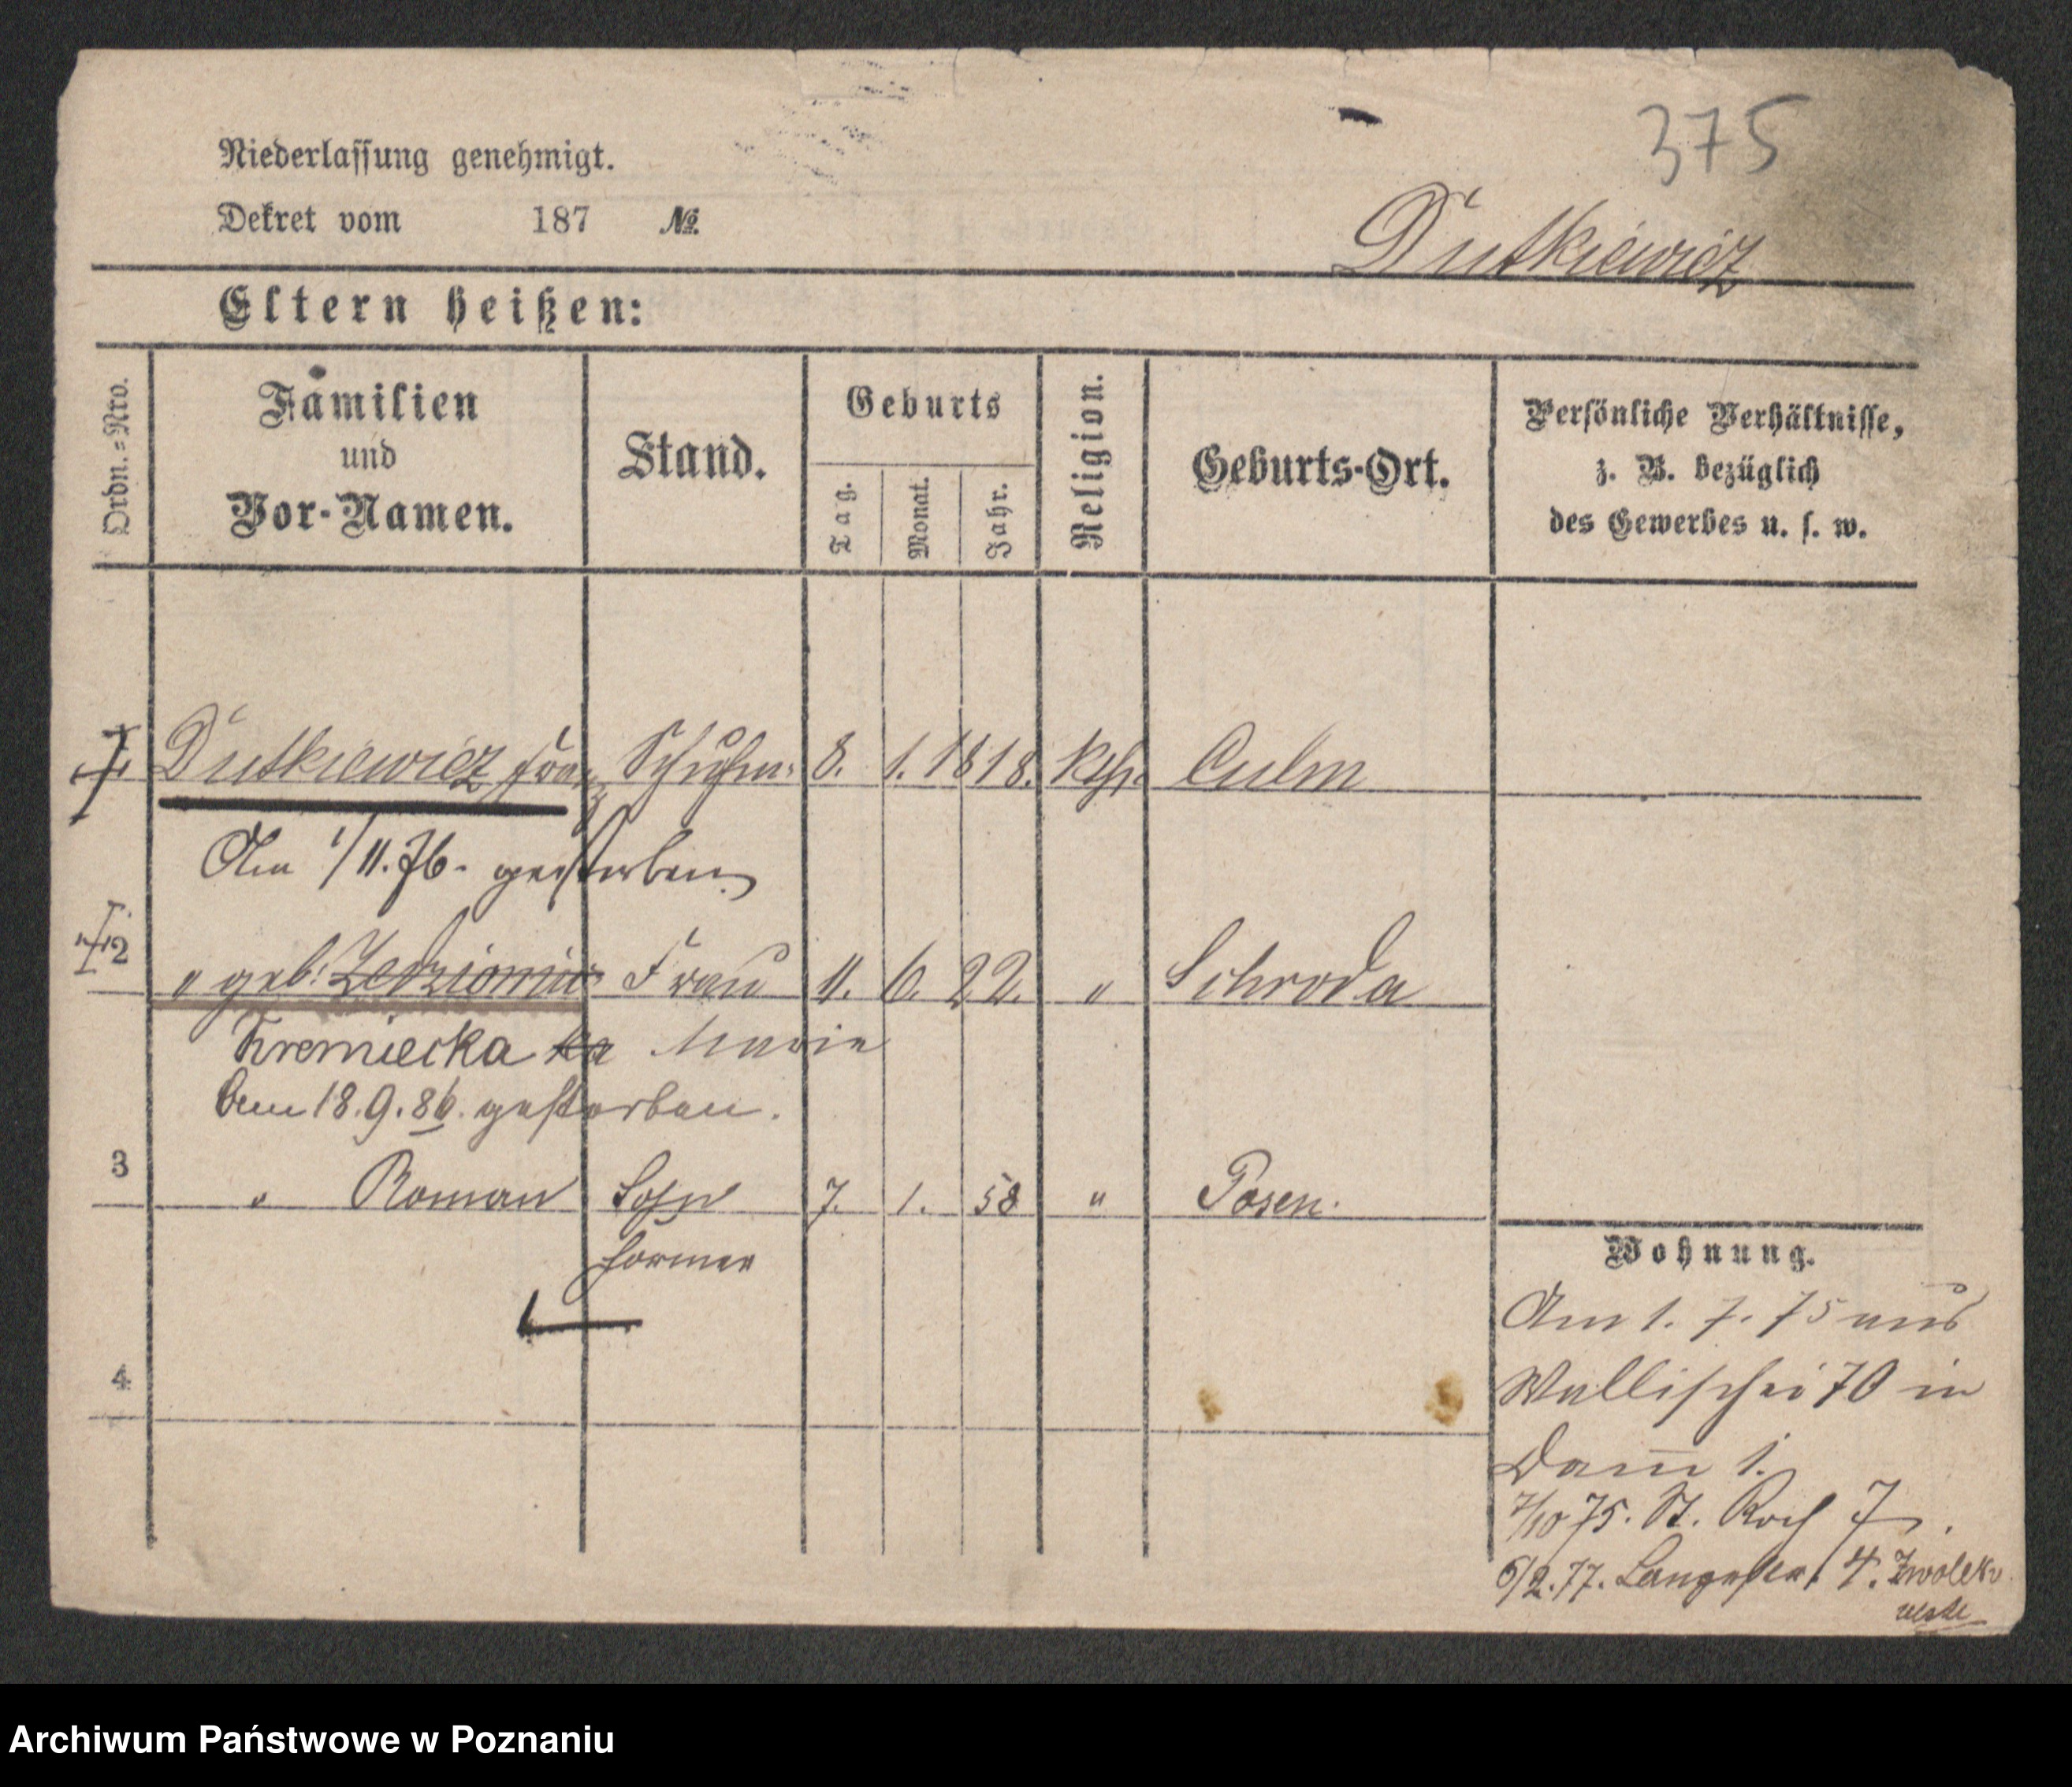 375
Niederlassung genehmigt.
Dekret vom 187 №
Dutkiewicz
Eltern heißen:
Ordn.=Nro.
Familien und Vor-Namen.
Stand.
Geburts
Tag.
Monat.
Jahr.
Religion.
Geburts-Ort.
Persönliche Verhältnisse,
z. B. bezüglich
des Gewerbes u. s. w.
Dutkiewicz Franz Schuhm: 8. 1. 1818. kth. Culm
Am 1/11.76. gestorben
2 " geb: Frau 11. 6. 22. " Schroda
Kremiecka Marie
Am 18.9.86. gestorben.
3 " Roman Sohn 7. 1. 58 " Posen.
Former
4
Wohnung.
Am 1. 7. 75 aus
Wallischei 70 in
Dam̅ 1.
7/10 75. St. Roch 7.
6/2.77. Langestr. 4.
Archiwum Państwowe w Poznaniu